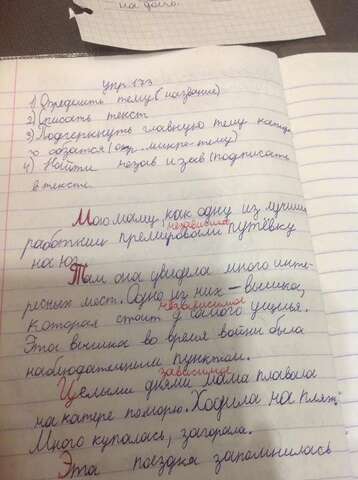 на долго.
упр 173
1) Определить тему (название)
2) Списать текст
3) Подчеркнуть главную тему каждо
го абзаца (опр. микро-тему)
4) Найти незав и зав (подписать
в тексте.
Мою маму, как одну из лучших
независимое
работниц премировали путёвку
на юг.
Там она увидела много инте-
ресных мест. Одно из них – вышка,
независимое
которая стоит у самого ущелья.
Эта вышка во время войны была
наблюдательным пунктом.
зависимое
Целыми днями мама плавала
на катере поморю. Ходила на пляж.
Много купалась, загорала.
Эта поездка запомнилась